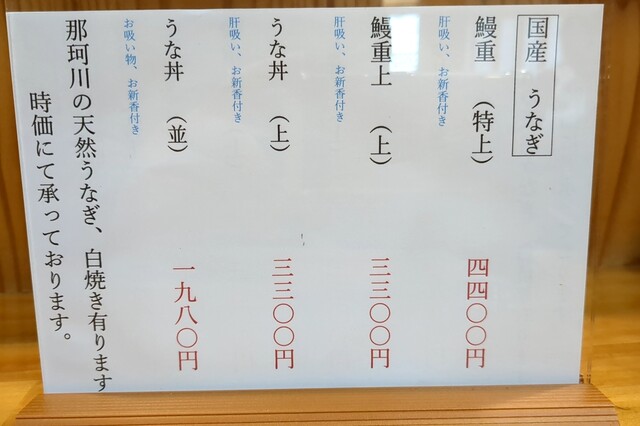 国産 うなぎ
鰻重 (特上) 四四〇〇円
肝吸い、お新香付き
鰻重上 (上) 三三〇〇円
肝吸い、お新香付き
うな丼 (上) 三三〇〇円
肝吸い、お新香付き
うな丼 (並) 一九八〇円
お吸い物、お新香付き
那珂川の天然うなぎ、白焼き有ります
時価にて承っております。